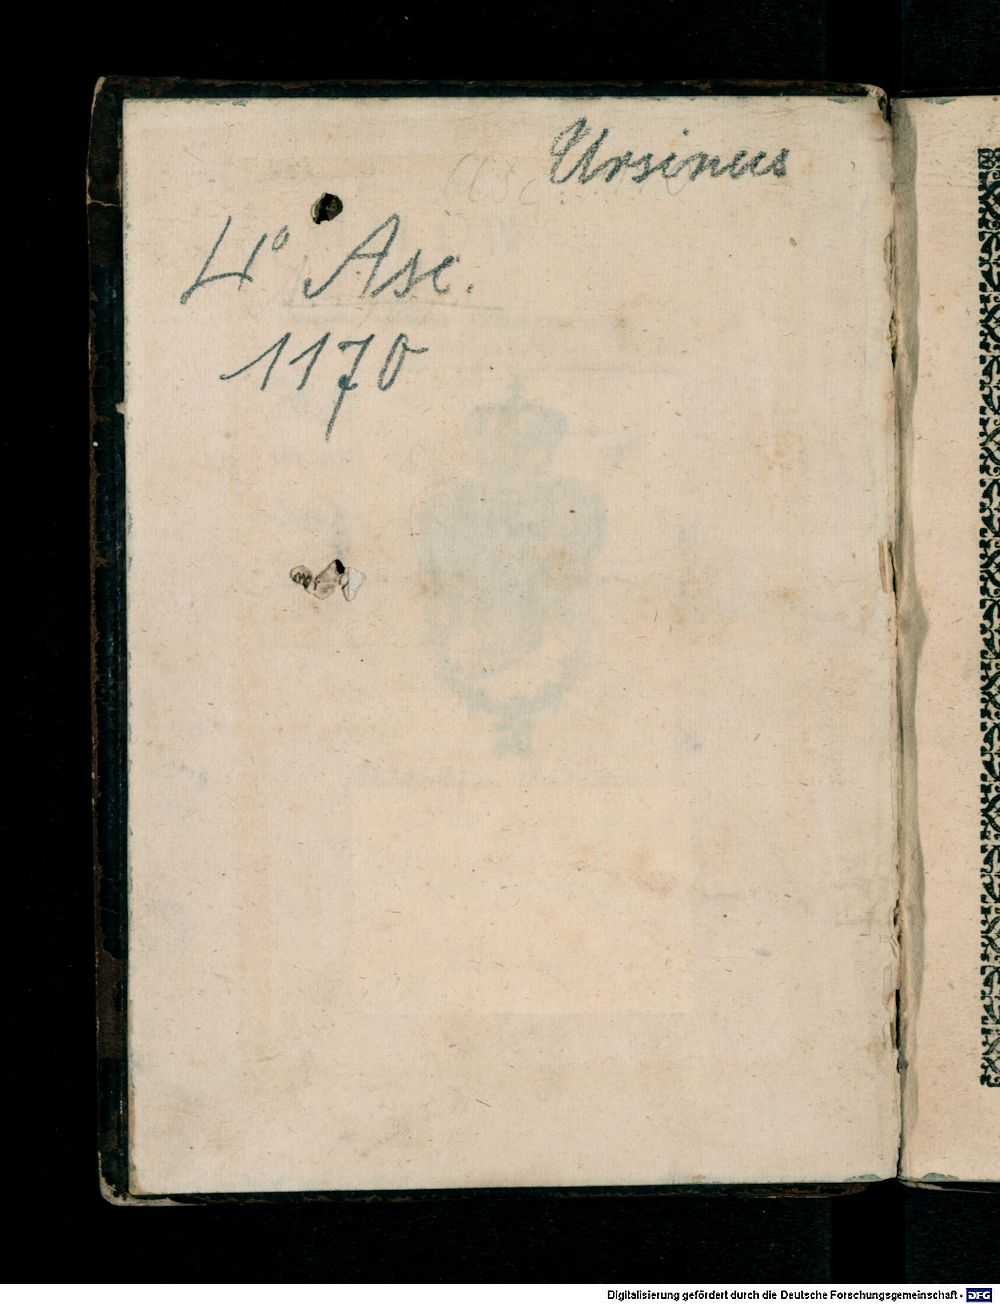 Ursinus
4° Asc.
1170
Digitalisierung gefördert durch die Deutsche Forschungsgemeinschaft - DFG